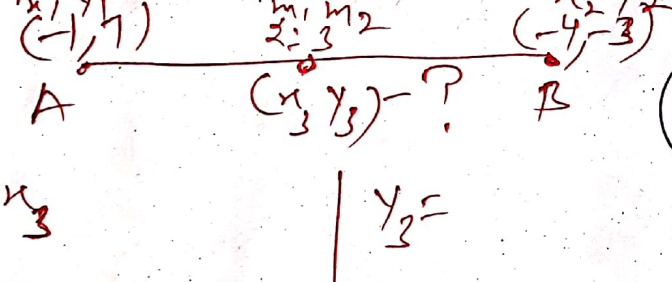 x, y, m, m₂ x₂, y₂
(-1, 7) 2:3 (-4, -3)
A (x₃ y₃)-? B
x₃ y₃=